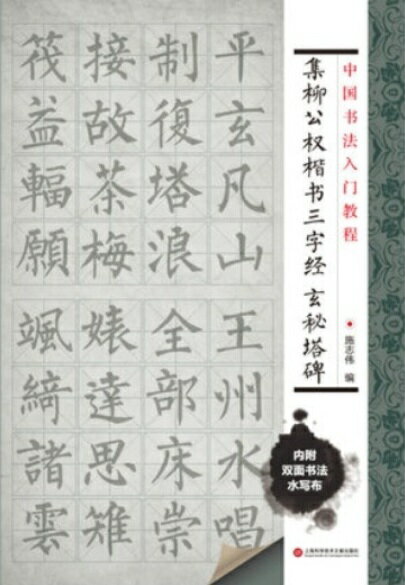 中国书法入门教程
集柳公权楷书三字经 玄秘塔碑
施志伟 编
内附
双面书法
水写布
平玄凡山
制復塔浪
接故茶梅
筏益輻願
王州水唱
全部床崇
婊達思雉
颯綺諸雲
上海科学技术文献出版社